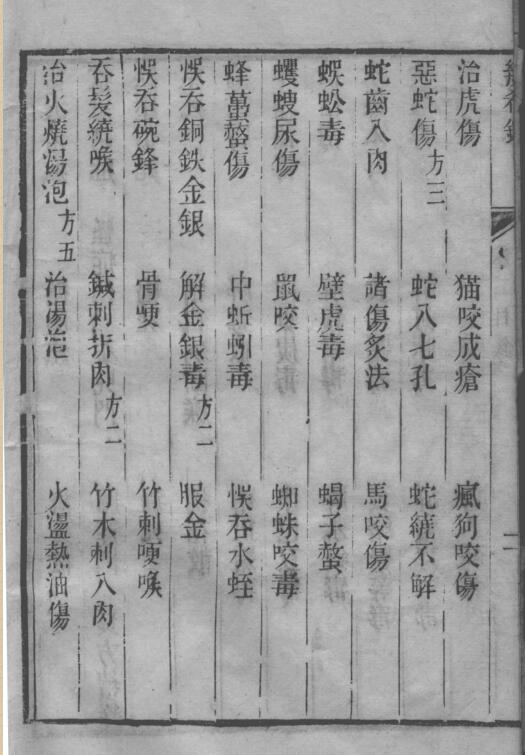 治虎傷 猫咬成瘡 瘋狗咬傷
惡蛇傷方三 蛇入七孔 蛇繞不解
蛇齒入肉 諸傷灸法 馬咬傷
蜈蚣毒 壁虎毒 蝎子螫
蠼螋尿傷 鼠咬 蜘蛛咬毒
蜂蠆螫傷 中蚯蚓毒 悞吞水蛭
悞吞銅鉄金銀 解金銀毒方二 服金
悞吞碗鋒 骨哽 竹刺哽喉
吞髮繞喉 鍼刺折肉方二 竹木刺入肉
治火燒湯泡方五 治湯泡 火盪熱油傷
二